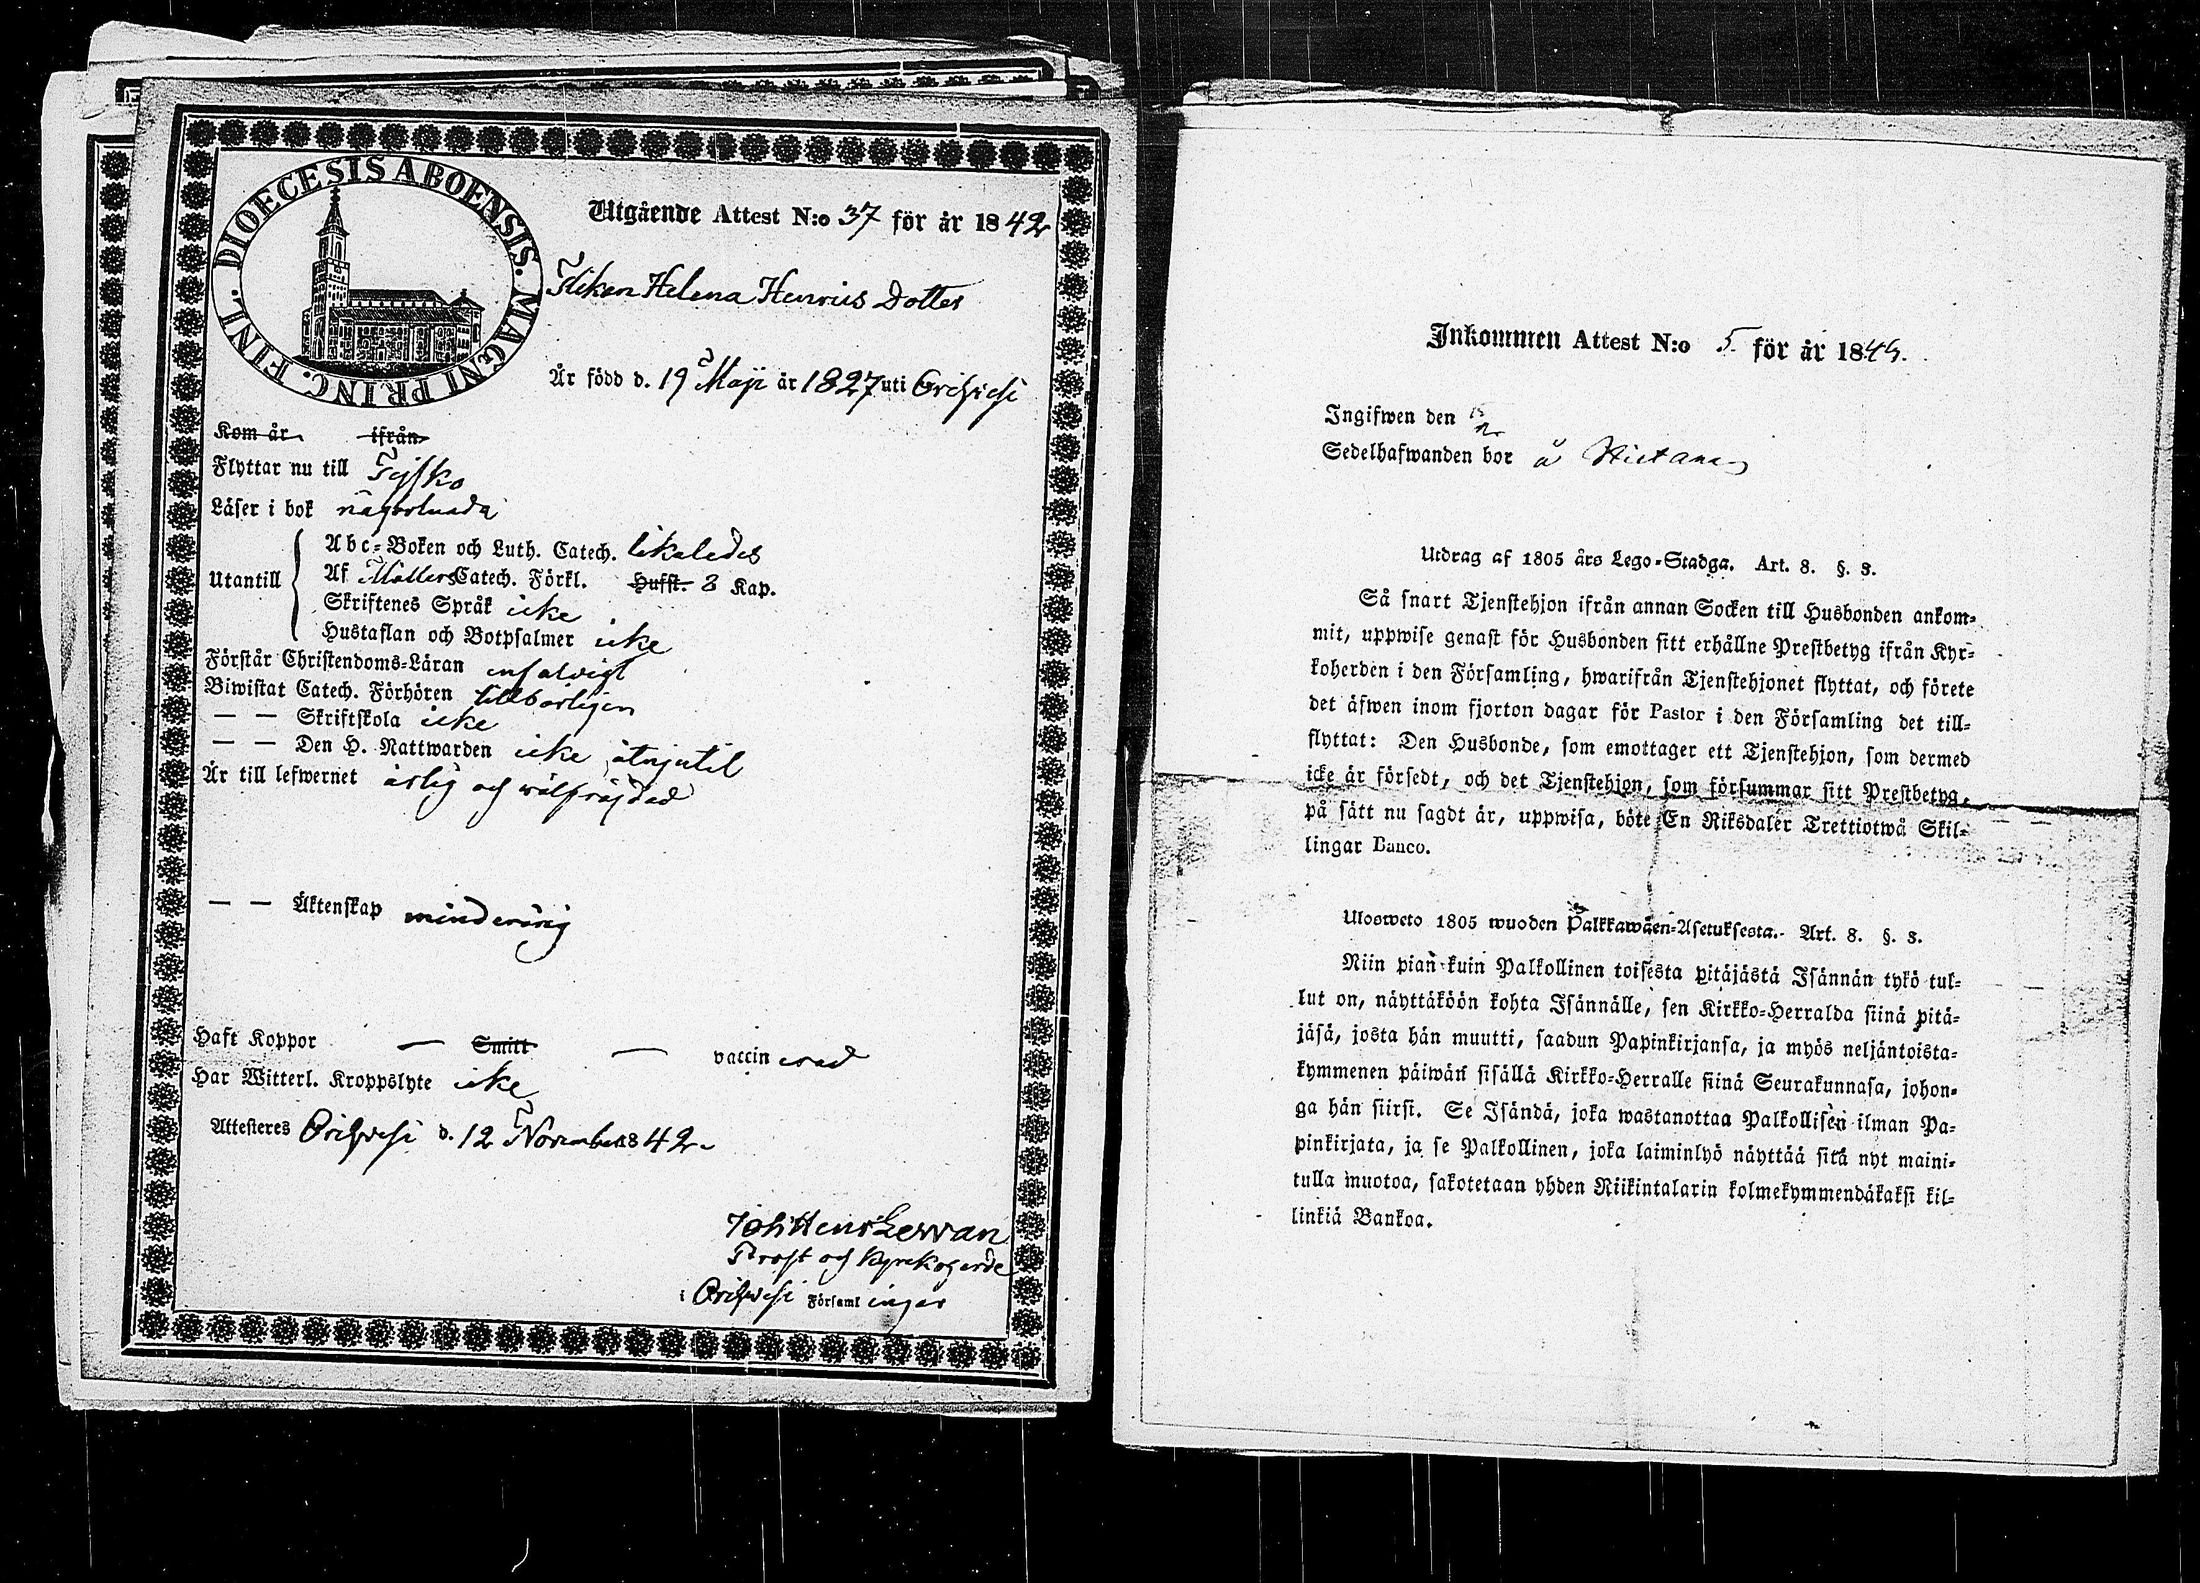 DIOECESIS ABOENSIS. MAGNI PRINC. FINL.
Utgående Attest N:o 37 för år 1842
Flickan Helena Henrics Dotter
Är född d. 19 Maji år 1827 uti Orihvesi
Kom år ifrån
Flyttar nu till
Läser i bok någorlunda
Utantill
Abc-Boken och Luth. Catech. likaledes
Af Möllers Catech. Förkl. Hufst. 3 Kap.
Skriftenes Språk icke
Hustaflan och Botpsalmer icke
Förstår Christendoms-Läran enfaldigt
Biwistat Catech. Förhören tillbörligen
— — Skriftskola icke
— — Den H. Nattwarden icke åtnjutit
Är till lefwernet ärlig och wälfräjdad
— — Äktenskap minderårig
Haft Koppor — Smitt — vaccinerad
Har Witterl. Kroppslyte icke
Attesteres Orihvesi d. 12 November 1842.
Joh: Henr:
Prost och Kyrkoherde
i Orihvesi Församlingar
Inkommen Attest N:o 5. för år 184
Ingifwen den
Sedelhafwanden bor å
Utdrag af 1805 års Lego-Stadga. Art. 8. §. 3.
Så snart Tjenstehjon ifrån annan Socken till Husbonden ankom-
mit, uppwise genast för Husbonden sitt erhållne Prestbetyg ifrån Kyr-
koherden i den Församling, hwarifrån Tjenstehjonet flyttat, och förete
det äfwen inom fjorton dagar för Pastor i den Församling det till-
flyttat: Den Husbonde, som emottager ett Tjenstehjon, som dermed
icke är försedt, och det Tjenstehjon, som försummar sitt Prestbetyg,
på sätt nu sagdt är, uppwisa, böte En Riksdaler Trettiotwå Skil-
lingar Banco.
Ulosweto 1805 wuoden Palkkawäen-Asetuksesta. Art. 8. §. 3.
Niin pian kuin Palkollinen toisesta pitäjästä Isännän tykö tul-
lut on, näyttäköön kohta Isännälle, sen Kirkko-Herralda siinä pitä-
jäsä, josta hän muutti, saadun Papinkirjansa, ja myös neljäntoista-
kymmenen päiwän sisällä Kirkko-Herralle siinä Seurakunnasa, johon-
ga hän siirsi. Se Isändä, joka wastanottaa Palkollisen ilman Pa-
pinkirjata, ja se Palkollinen, joka laiminlyö näyttää sitä nyt maini-
tulla muotoa, sakotetaan yhden Riikintalarin kolmekymmendäkaksi kil-
linkiä Bankoa.